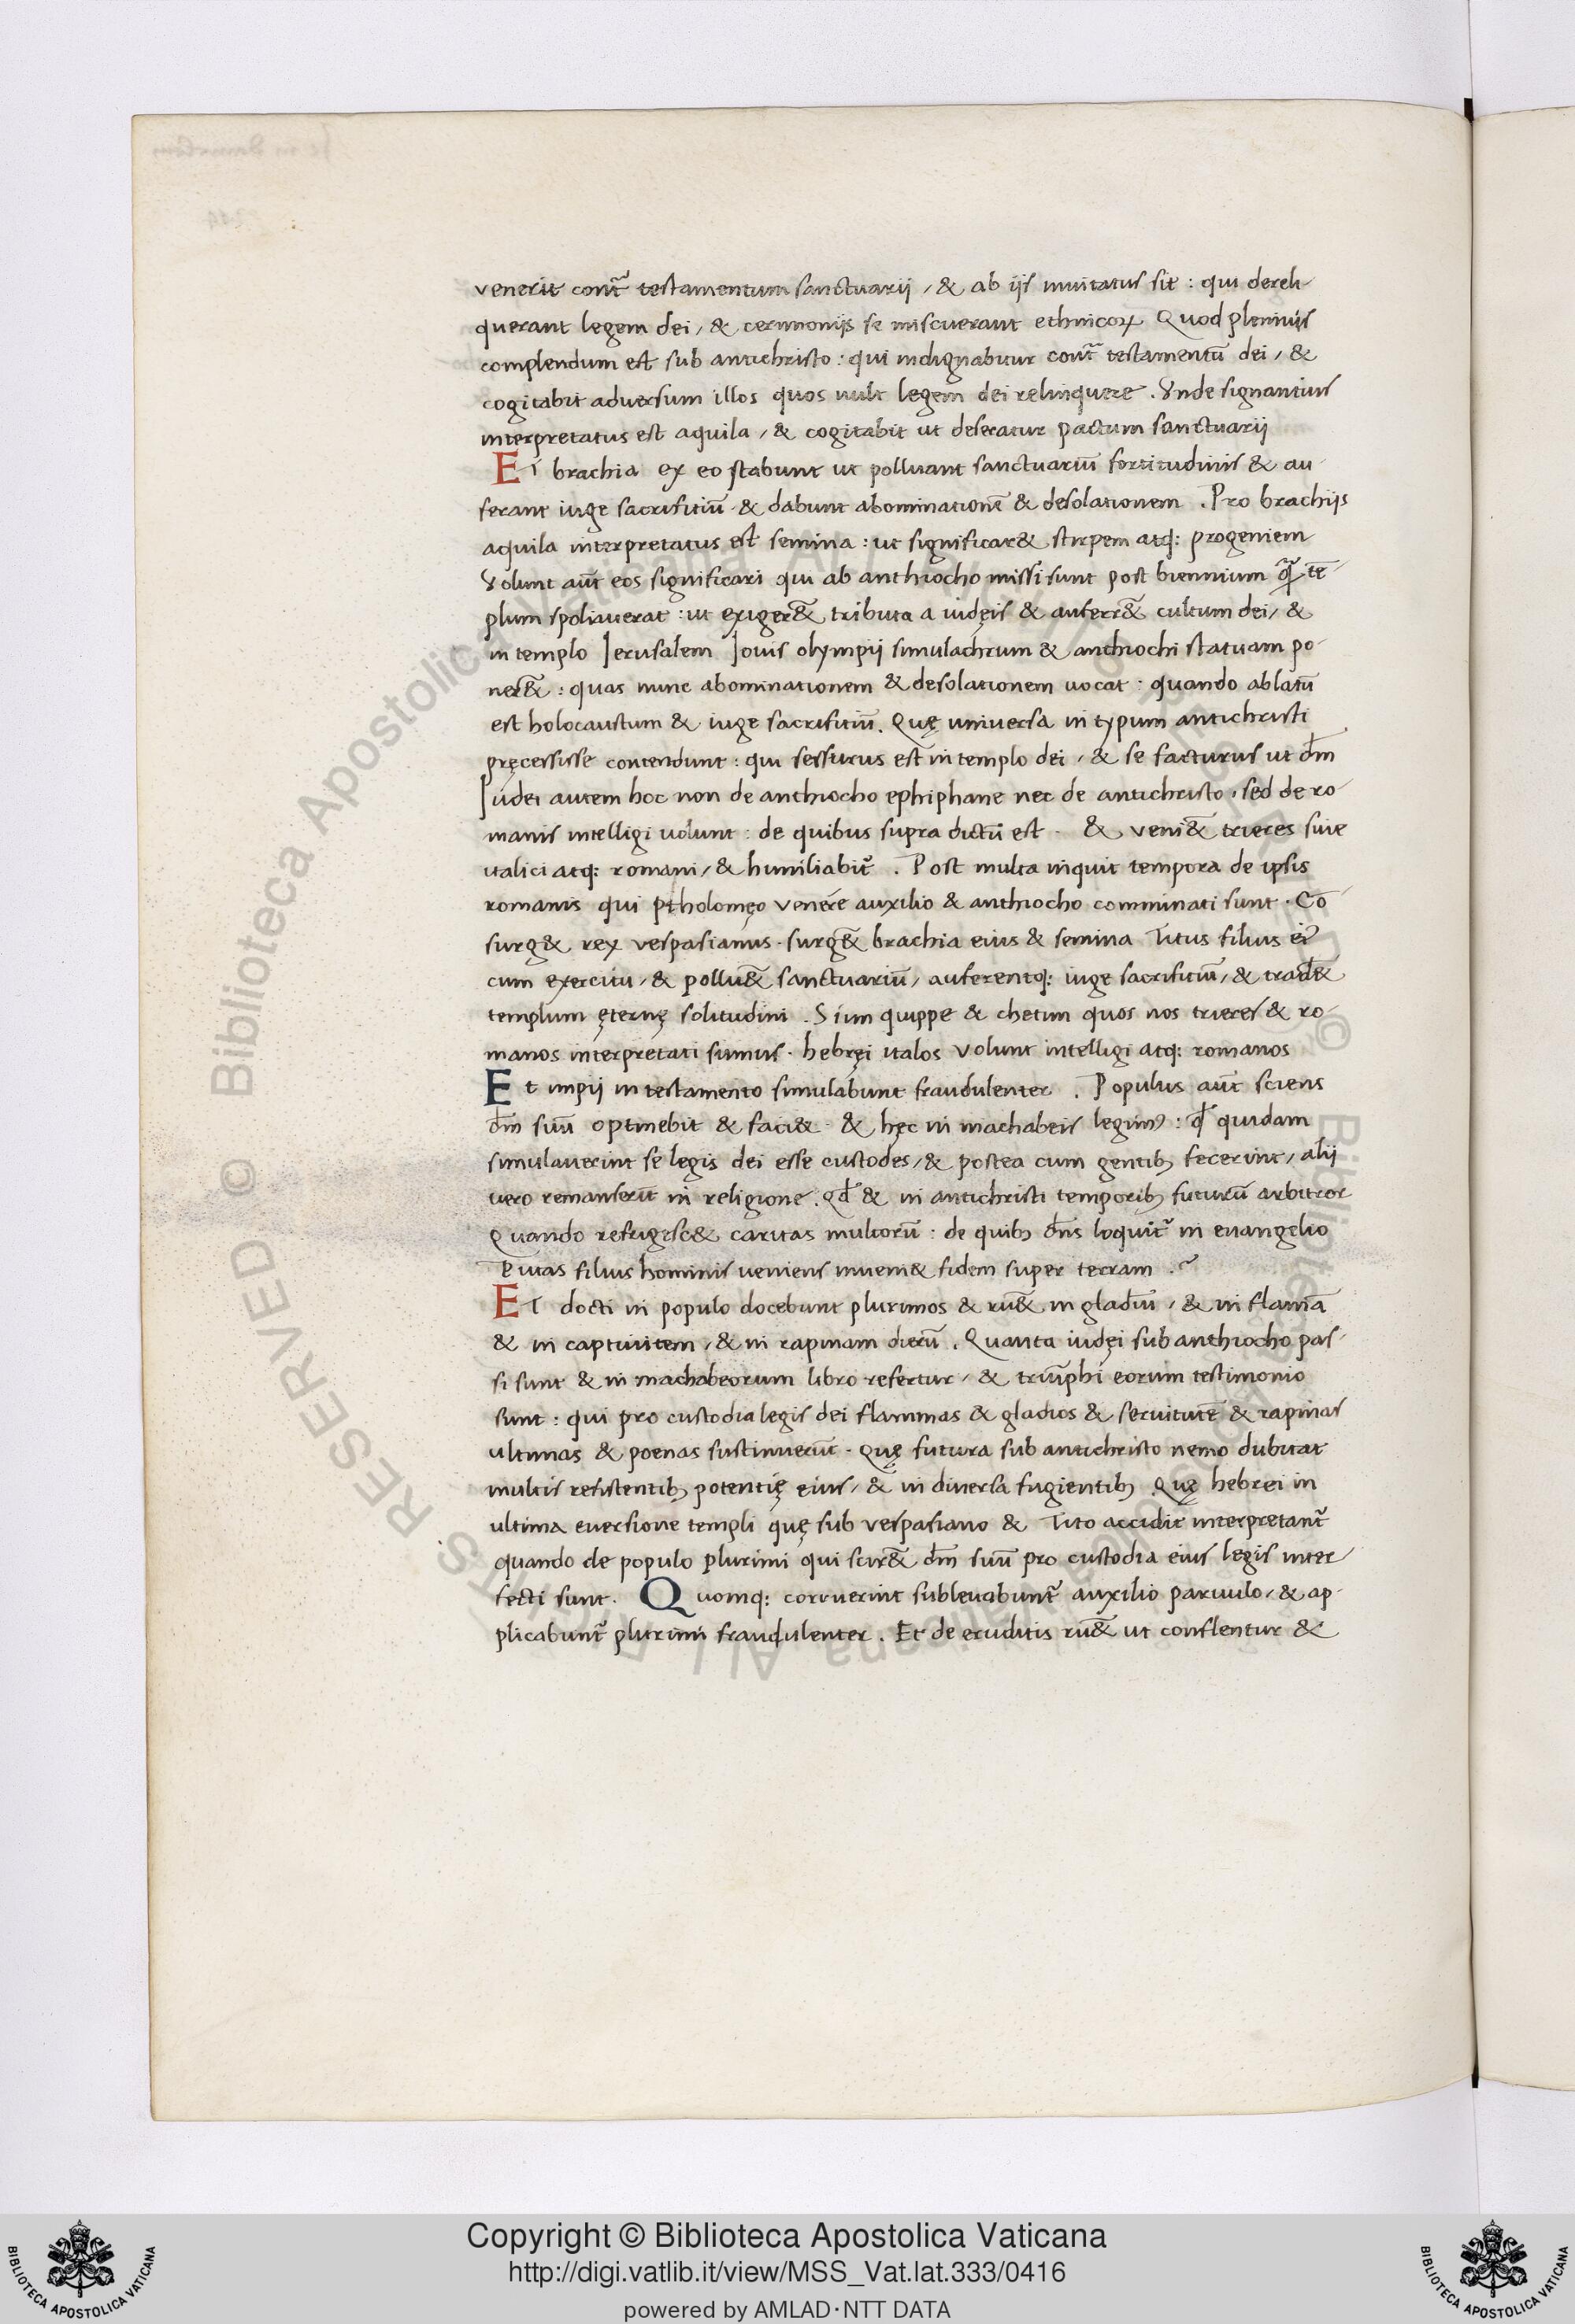 venerit cont᷑ testamentum sanctuarij / & ab ijs inuitatus sit : qui dereli-
querant legem dei / & cerimonijs se miscuerant ethnicoꝝ Quod pleniuˢ
complendum est sub antichristo : qui indignabitur cont᷑ testamentū dei / &
cogitabit adversum illos quos uult legem dei relinquere . Vnde signantius
interpretatus est aquila / & cogitabit ut deseratur pactum sanctuarij
ET brachia ex eo stabunt ut polluant sanctuariū fortitudinis & au-
ferant iuge sacrifitiū & dabunt abominationē & desolationem . Pro brachijs
aquila interpretatus est semina : ut significar& stirpem atq: progeniem
Volunt aūt eos significari qui ab anthiocho missi sunt post biennium q̃ tē-
plum spoliauerat : ut exiger&̄ tributa a iudęis & auferr&̄ cultum dei / &
in templo Jerusalem Jouis olympij simulachrum & anthiochi statuam po-
ner&̄ : quas nunc abominationem & desolationem uocat : quando ablatū
est holocaustum & iuge sacrifitiū. Quę universa in typum antichristi
pręcessisse contendunt : qui sessurus est in templo dei / & se facturus ut dm̄
Judei autem hoc non de anthiocho ephiphane nec de antichristo . sed de ro-
manis intelligi uolunt : de quibus supra dictū est . & veni&̄ trieres siue
italici atq: romani / & humiliabit᷑ . Post multa inquit tempora de ipsis
romanis qui ptholomęo venēre auxilio & anthiocho comminati sunt . Cō-
surg& rex vespasianus . surg&̄ brachia eius & semina Titus filius ei᾽
cum exercitu / & pollu&̄ sanctuariū / auferentq: iuge sacrifitiū / & trad&̄
templum ęternę solitudini . Siim quippe & chetim quos nos trieres & ro-
manos interpretati sumus . hebręi italos volunt intelligi atq: romanos
Et impij in testamento simulabunt fraudulenter . Populus aūt sciens
dm̄ suū optinebit & faci& . & hęc in machabeis legim᾽ : qđ quidam
simulaverint se legis dei esse custodes / & postea cum gentibꝫ fecerint / alij
uero remanserūt in religione . Qđ & in antichristi temporibꝫ futurū arbitror
Quando refrigesc& caritas multorū : de quibꝫ dn̄s loquit᷑ in euangelio
Putas filius hominis ueniens inueni& fidem super terram .
ET docti in populo docebunt plurimos & ru&̄ in gladiū / & in flamā
& in captiuitem / & in rapinam dierū . Quanta iudęi sub anthiocho pas-
si sunt & in machabeorum libro refertur / & triūphi eorum testimonio
sunt : qui pro custodia legis dei flammas & gladios & seruitutē & rapinas
ultimas & poenas sustinuerūt . Quę futura sub antichristo nemo dubitat
multis resistentibꝫ potentię eius / & in diuersa fugientibꝫ Quę hebrei in
ultima euersione templi quę sub vespasiano & Tito accidit interpretant᷑
quando de populo plurimi qui scir&̄ dm̄ suū pro custodia eius legis inter-
fecti sunt. Quomq: corruerint subleuabunt᷑ auxilio paruulo / & ap-
plicabunt᷑ plurimi fraudulenter . Et de eruditis ru&̄ ut conflentur &
Copyright © Biblioteca Apostolica Vaticana
http://digi.vatlib.it/view/MSS_Vat.lat.333/0416
powered by AMLAD·NTT DATA